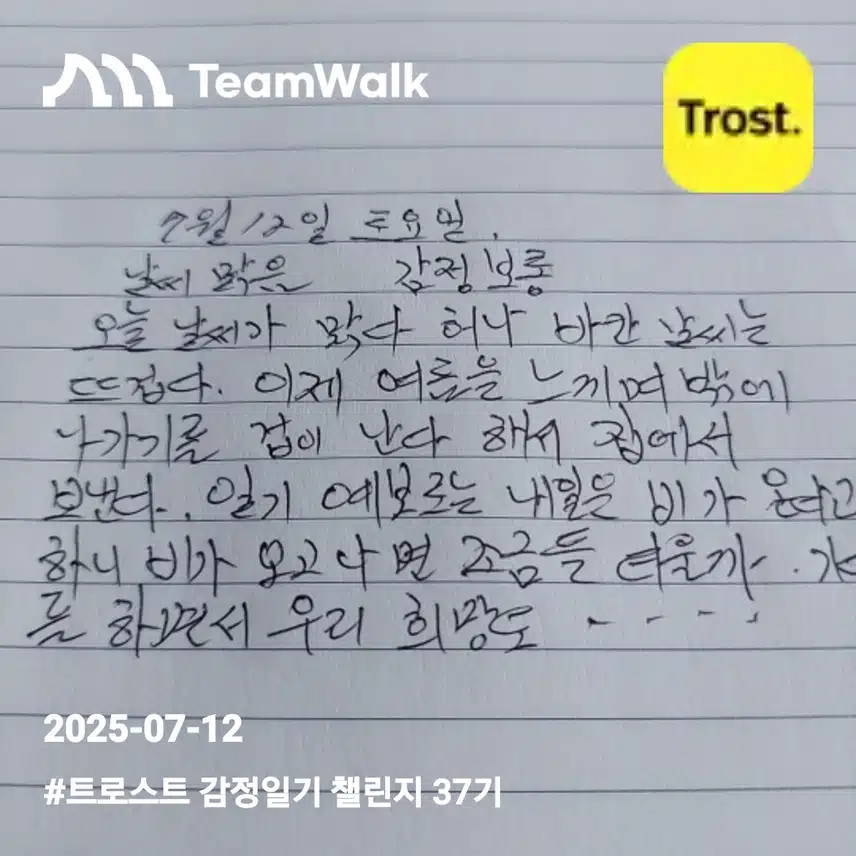 TeamWalk
Trost.
7월 12일 토요일.
날씨 맑은 감정 보통
오늘 날씨가 맑다 허나 바깐 날씨는
뜨겁다. 이제 여름을 느끼며 밖에
나가기를 겁이 난다 해서 집에서
보낸다. 일기 예보로는 내일은 비가 온다고
하니 비가 오고나면 조금들 더울까.
를 하면서 우리 희망도 - - - -
2025-07-12
#트로스트 감정일기 챌린지 37기